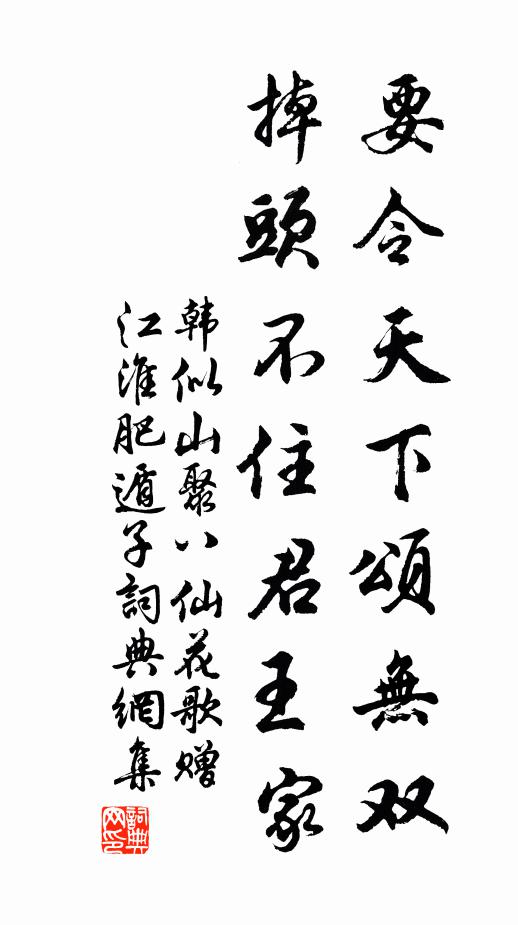 要令天下頌無双
掉頭不住君王家
韩似山聚八仙花歌赠
江淮肥遁子詞典網集
詞典
网印